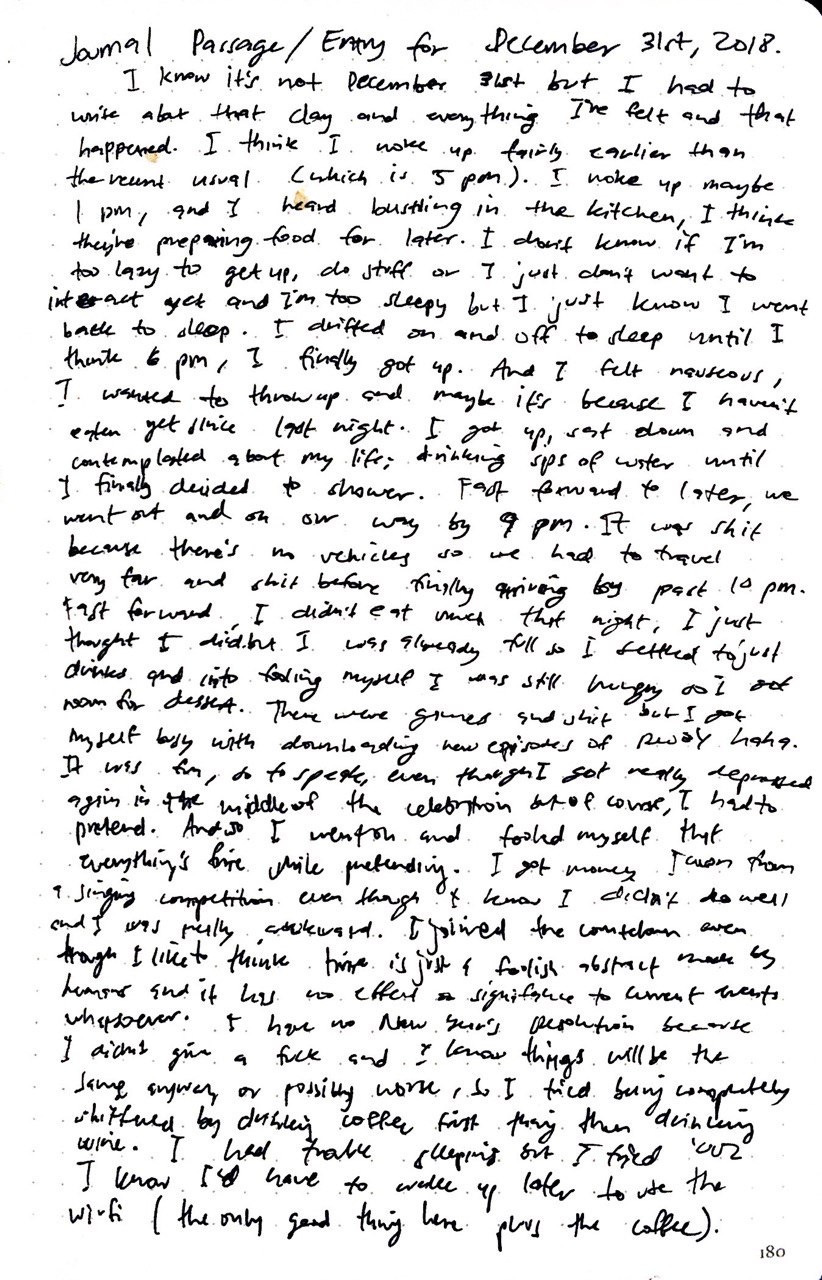 Journal Passage/Entry for December 31st, 2018.
I know it's not December 31st but I had to
write abt that day and everything I've felt and that
happened. I think I woke up fairly earlier than
the recent usual (which is 5 pm). I woke up maybe
1 pm, and I heard bustling in the kitchen, I think
they're preparing food for later. I don't know if I'm
too lazy to get up, do stuff or I just don't want to
interact yet and I'm too sleepy but I just know I went
back to sleep. I drifted on and off to sleep until I
think 6 pm, I finally got up. And I felt nauseous,
I wanted to throw up and maybe it's because I haven't
eaten yet since last night. I got up, sat down and
contemplated about my life; drinking sips of water until
I finally decided to shower. Fast forward to later, we
went out and on our way by 9 pm. It was shit
because there's no vehicles so we had to travel
very far and shit before finally arriving by past 10 pm.
Fast forward, I didn't eat much that night, I just
thought I did but I was already full so I settled to just
drinks and into fooling myself I was still hungry so I
room for dessert. There were games and shit but I got
myself busy with downloading new episodes of RWBY haha.
It was fun, so to speak, even though I got really depressed
again in the middle of the celebration but of course, I had to
pretend. And so I went on and fooled myself that
everything's fine while pretending. I got money I won from
a singing competition even though I know I didn't do well
and I was really awkward. I joined the countdown even
though I like to think time is just a foolish abstract made by
humans and it has no effect or significance to current events
whatsoever. I have no New Year's Resolution because
I didn't give a fuck and I know things will be the
same anyway or possibly worse, so I tried being completely
by drinking coffee first thing then drinking
wine. I had trouble sleeping but I tried 'cuz
I know I'd have to wake up later to use the
wi-fi (the only good thing here plus the coffee).
180